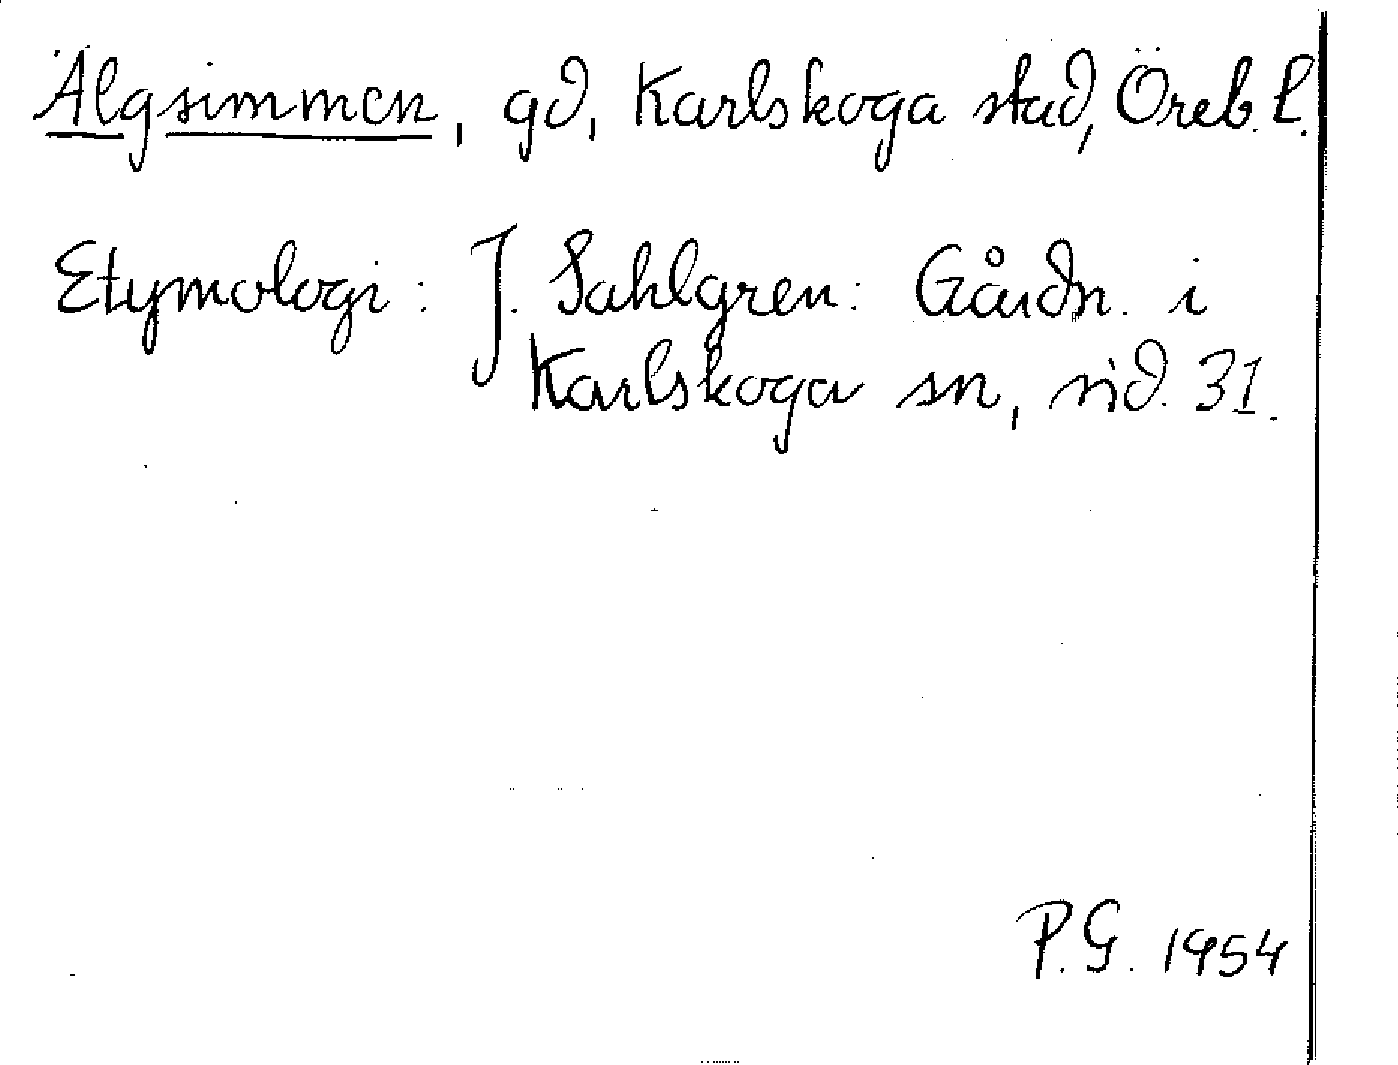 Älgsimmen, gd, Karlskoga stad, Öreb. l.
Etymologi: J. Sahlgren: Gårdn. i
Karlskoga sn, sid. 31.
P.G. 1954